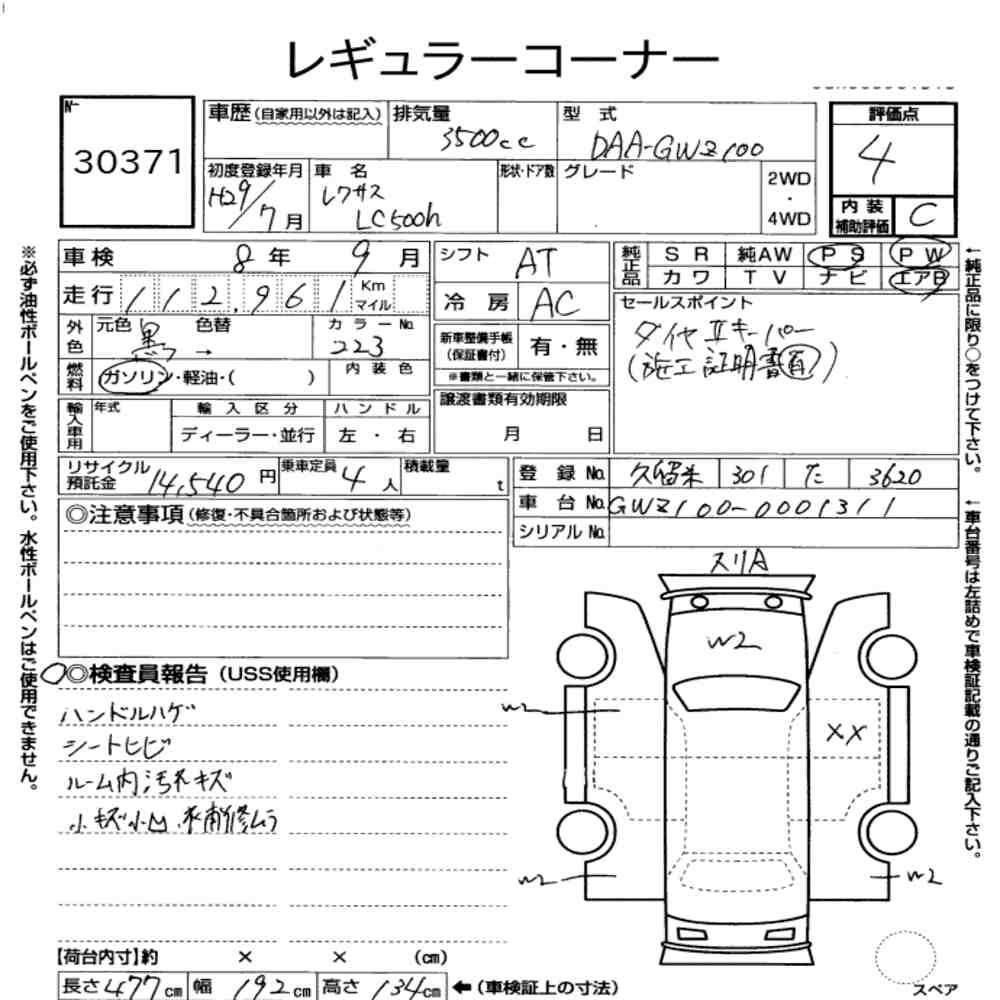 レギュラーコーナー
No. 30371
車歴(自家用以外は記入) 排気量 3500cc 型式 DAA-GWZ100
初度登録年月 H29/7月 車名 レクサス LC500h 形状・ドア数 グレード 2WD・4WD
評価点 4
内装補助評価 C
車検 8年 9月
走行 112,961 Km マイル
外色 元色 黒 色替 → カラーNo. 223
燃料 ガソリン・軽油・( ) 内装色
輸入車用 年式 輸入区分 ハンドル
ディーラー・並行 左・右
シフト AT
冷房 AC
新車整備手帳(保証書付) 有・無
※書類と一緒に保管下さい。
譲渡書類有効期限
月 日
純正品 SR 純AW PS PW
カワ TV ナビ エアB
セールスポイント
ダイヤⅡキーパー
(施工証明書有)
リサイクル預託金 14,540円 乗車定員 4人 積載量 t
登録No. 久留米 301 た 3620
車台No. GWZ100-0001311
シリアルNo.
◎注意事項(修復・不具合箇所および状態等)
◎検査員報告(USS使用欄)
ハンドルハゲ
シートヒビ
ルーム内汚れキズ
小キズ小凹
補修ムラ
スリA
W2
W2
XX
W2
W2
スペア
【荷台内寸】約 × × (cm)
長さ477cm 幅192cm 高さ134cm ←(車検証上の寸法)
※必ず油性ボールペンをご使用下さい。水性ボールペンはご使用できません。
←純正品に限り○をつけて下さい。
←車台番号は左詰めで車検証記載の通りご記入下さい。